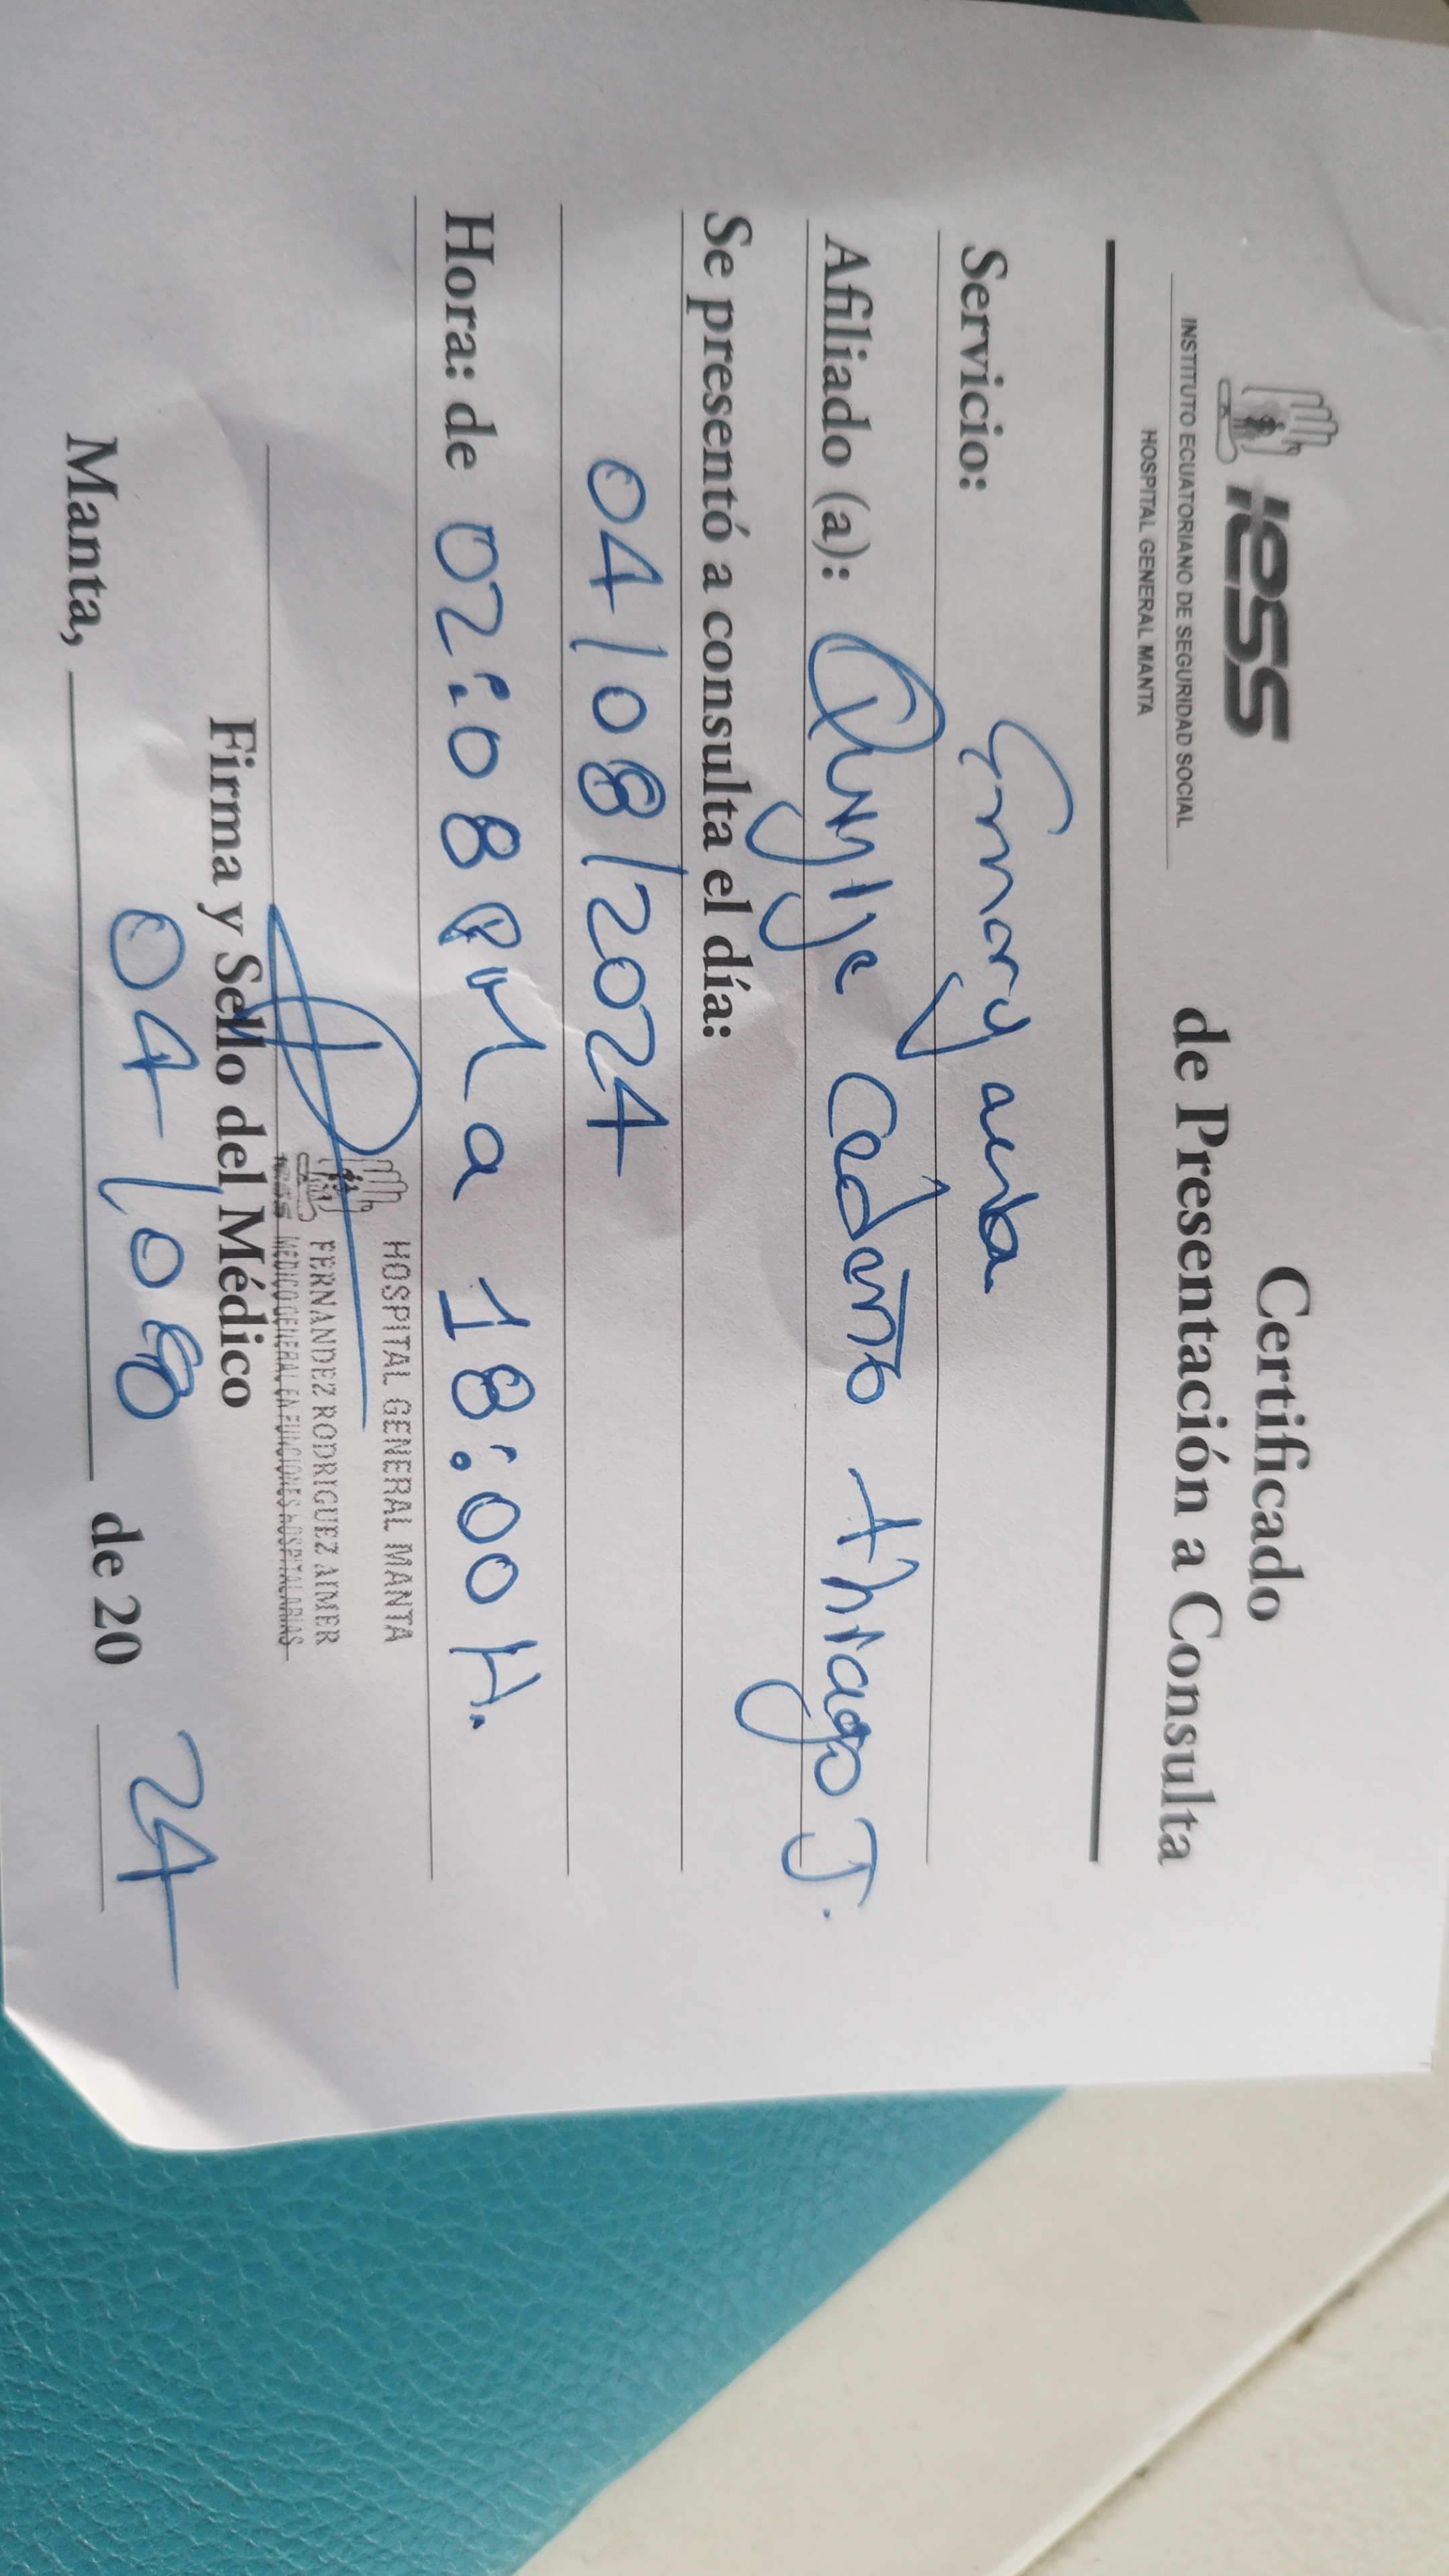 iess
INSTITUTO ECUATORIANO DE SEGURIDAD SOCIAL
HOSPITAL GENERAL MANTA
Certificado
de Presentación a Consulta
Servicio:
Afiliado (a): Quijije Cedeño thiago J.
Se presentó a consulta el día:
04/08/2024
Hora: de 02:08 PM a 18:00 H.
HOSPITAL GENERAL MANTA
FERNANDEZ RODRIGUEZ AIMER
MEDICO GENERAL EN FUNCIONES HOSPITALARIAS
Firma y Sello del Médico
Manta, 04/08 de 20 24